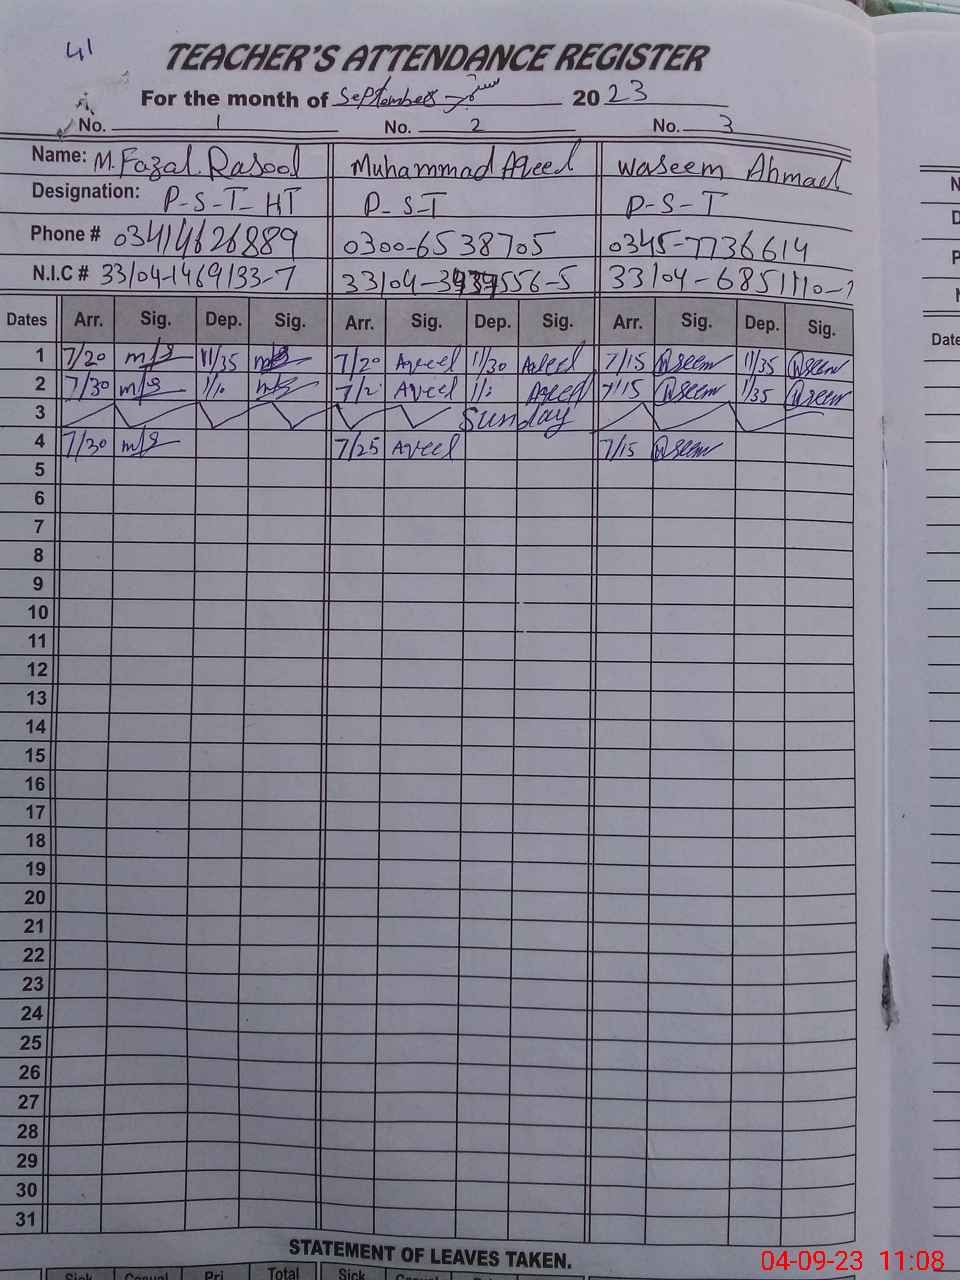 41
TEACHER'S ATTENDANCE REGISTER
For the month of September ستمبر 2023
No. 1 No. 2 No. 3
Name: M. Fazal Rasool Muhammad Aqeel Waseem Ahmad
Designation: P-S-T-HT P-S-T P-S-T
Phone # 03414626889 0300-6538705 0345-7736614
N.I.C # 33104-1469133-7 33104-556-5 33104-6851110-
Dates Arr. Sig. Dep. Sig. Arr. Sig. Dep. Sig. Arr. Sig. Dep. Sig.
1 7/20 11/35 7/20 Aqeel 11/30 Aqeel 7/15 Wseem 11/35 Wseem
2 7/30 Aqeel Aqeel 7/15 Wseem 1/35 Wseem
3 Sunday
4 7/30 7/25 Aqeel 7/15 Wseem
5
6
7
8
9
10
11
12
13
14
15
16
17
18
19
20
21
22
23
24
25
26
27
28
29
30
31
STATEMENT OF LEAVES TAKEN.
Sick Casual Pri Total Sick
04-09-23 11:08
Date